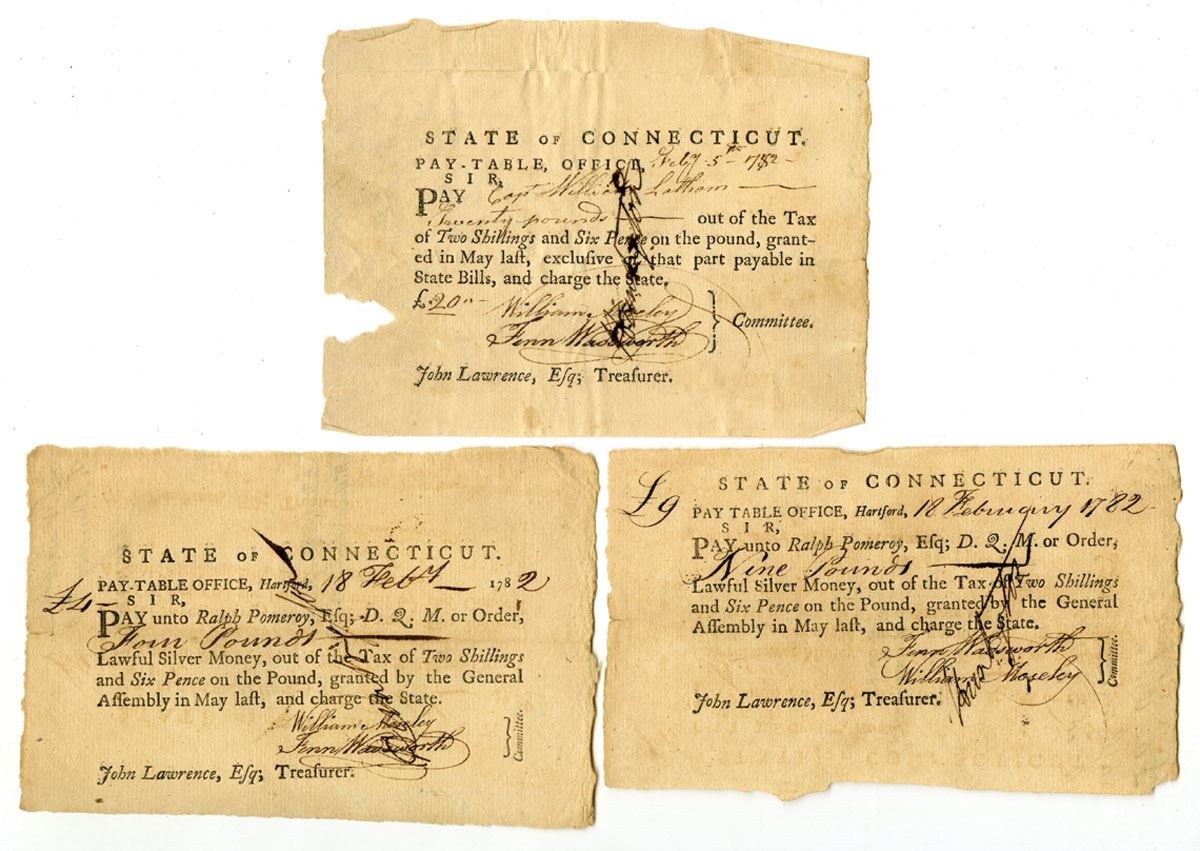 STATE OF CONNECTICUT.
PAY-TABLE, OFFICE, Feby 5th 1782
SIR,
PAY Capt William Latham
Twenty pounds out of the Tax
of Two Shillings and Six Pence on the pound, grant-
ed in May laſt, exclusive of that part payable in
State Bills, and charge the State.
£.20
William Moseley
Fenn Wadsworth } Committee.
John Lawrence, Eſq; Treaſurer.
STATE OF CONNECTICUT.
PAY-TABLE OFFICE, Hartford, 18 Feby 1782
£4 SIR,
PAY unto Ralph Pomeroy, Eſq; D. Q. M. or Order,
Four Pounds
Lawful Silver Money, out of the Tax of Two Shillings
and Six Pence on the Pound, granted by the General
Aſſembly in May laſt, and charge the State.
William Moseley
Fenn Wadsworth } Committee.
John Lawrence, Eſq; Treaſurer.
STATE OF CONNECTICUT.
£9 PAY TABLE OFFICE, Hartford, 18 February 1782
SIR,
PAY unto Ralph Pomeroy, Eſq; D. Q. M. or Order,
Nine Pounds
Lawful Silver Money, out of the Tax of Two Shillings
and Six Pence on the Pound, granted by the General
Aſſembly in May laſt, and charge the State.
Fenn Wadsworth
William Moseley } Committee.
John Lawrence, Eſq; Treaſurer.